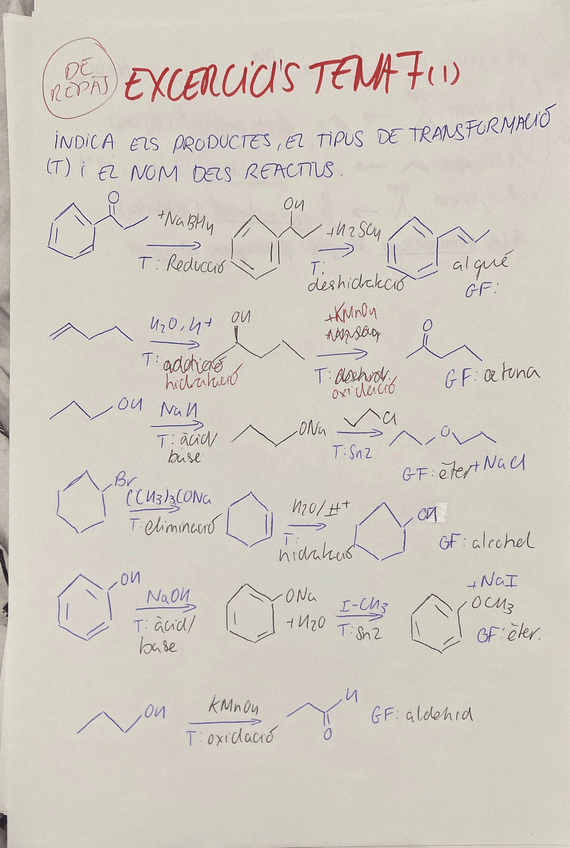 DE
REPÀS
EXCERCICIS TEMA 7 (1)
INDICA ELS PRODUCTES, EL TIPUS DE TRANSFORMACIÓ
(T) I EL NOM DELS REACTIUS.
O OH
+NaBH4 +H2SO4
T: Reducció T: deshidratació
alqué
GF:
H2O, H+ OH +KMnO4 O
T: addició
hidratació T:
oxidació
GF: cetona
OH NaH ONa Cl O
T: àcid/
base T: Sn2
GF: èter + NaCl
Br (CH3)3CONa H2O/H+ OH
T: eliminació T:
hidratació GF: alcohol
OH NaOH ONa I-CH3 + NaI
T: àcid/
base + H2O T: Sn2 OCH3
GF: èter.
OH KMnO4 H
T: oxidació O GF: aldehid